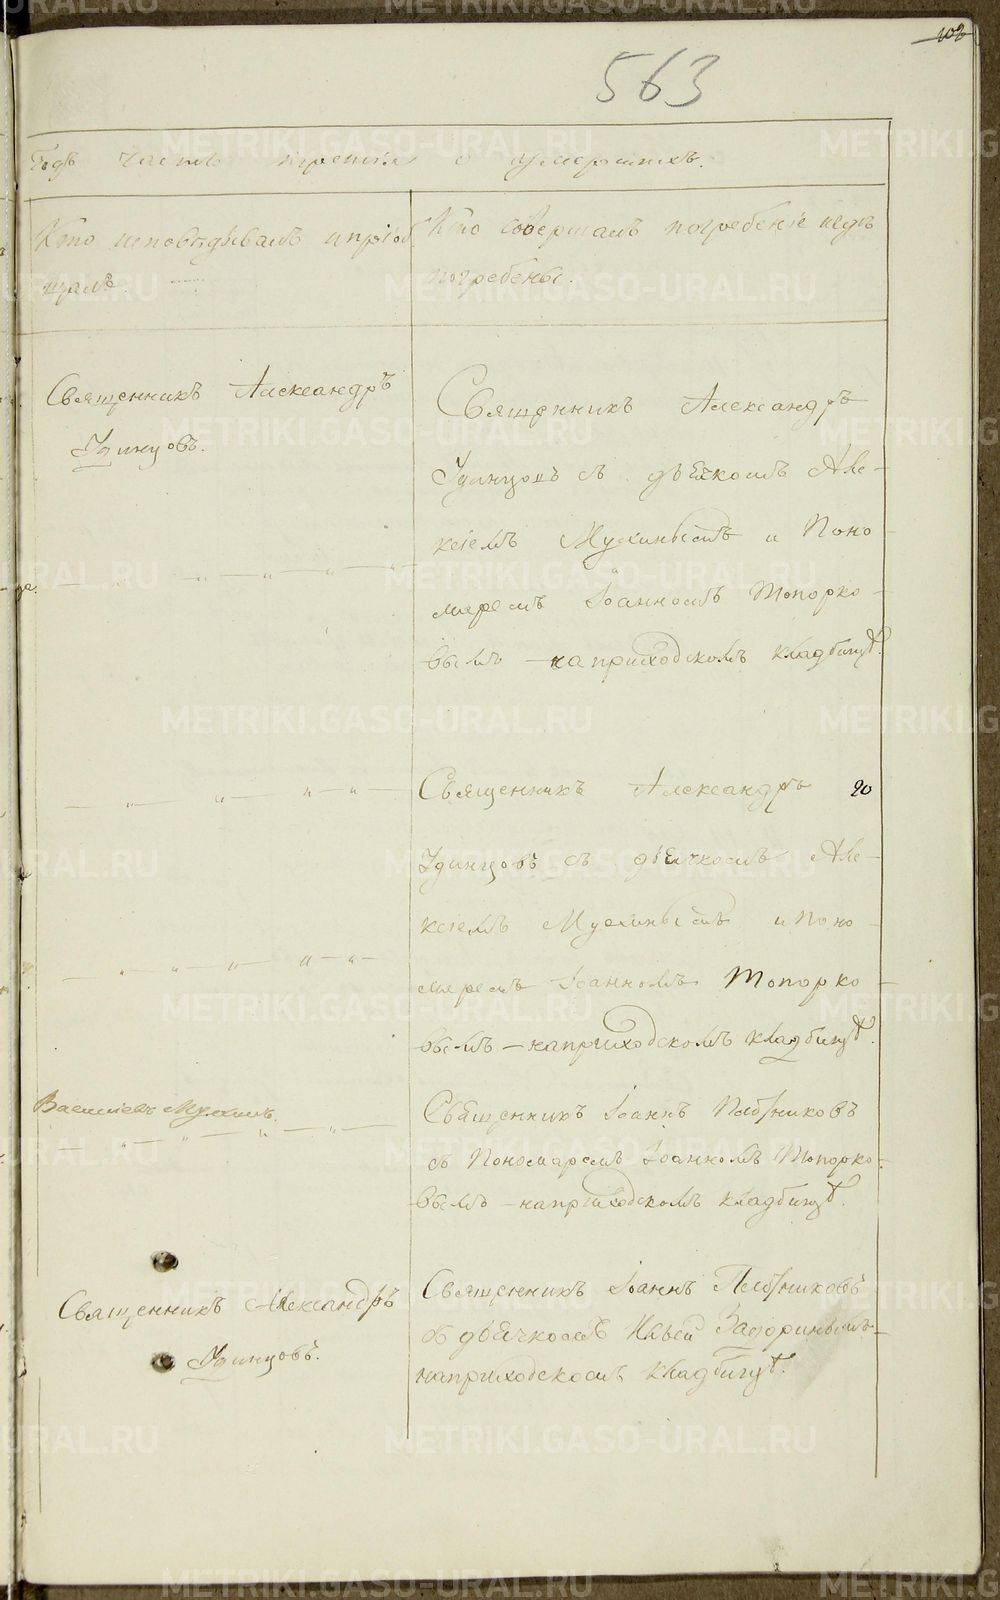 563
Годъ часть третія о умершихъ.
Кто исповѣдывалъ и пріоб
щалъ.
Кто совершалъ погребеніе и гдѣ
погребены.
Священникъ Александръ
Удинцовъ.
Священникъ Александръ
Удинцовъ съ дьячкомъ Але-
ксіемъ Мухинымъ и Поно-
маремъ Іоанномъ Топорко-
вымъ – на приходскомъ кладбищѣ.
Священникъ Александръ
Удинцовъ съ дьячкомъ Але-
ксіемъ Мухинымъ и Поно-
маремъ Іоанномъ Топорко-
вымъ – на приходскомъ кладбищѣ.
Священникъ Іоаннъ
съ Пономаремъ Іоанномъ Топорко-
вымъ – на приходскомъ кладбищѣ.
Священникъ Александръ
Удинцовъ.
Священникъ Іоаннъ
съ дьячкомъ Ильей
на приходскомъ кладбищѣ.
METRIKI.GASO-URAL.RU